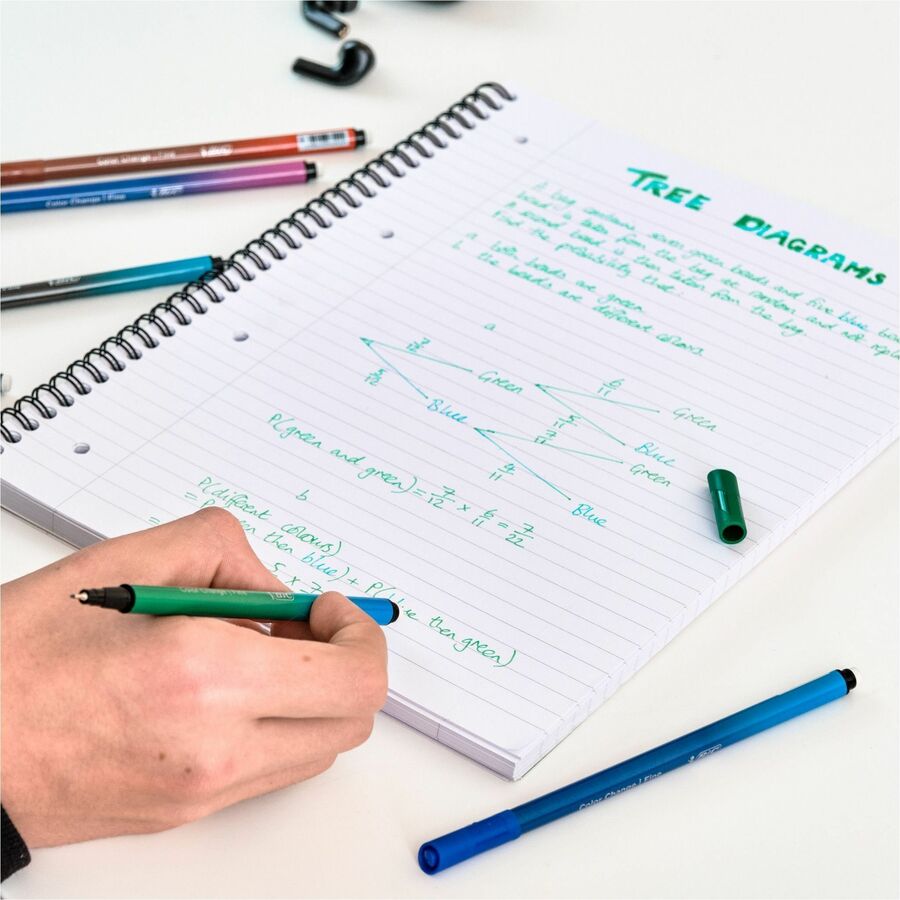 TREE DIAGRAMS
A bag contains seven green beads and five blue
bead is taken from the bag at random and not
A second bead is then taken from the bag
Find the probability that:
a both beads are green
b the beads are different colours.
a
7/12 Green 6/11 Green
5/12 Blue 5/11 Blue
7/11 Green
4/11 Blue
P(green and green) = 7/12 × 6/11 = 7/22
b
P(different colours)
= then blue) + P(blue then green)
=
5 × 7
Color Change | Fine BIC
Color Change | Fine BIC
BIC
Color Change | Fine BIC